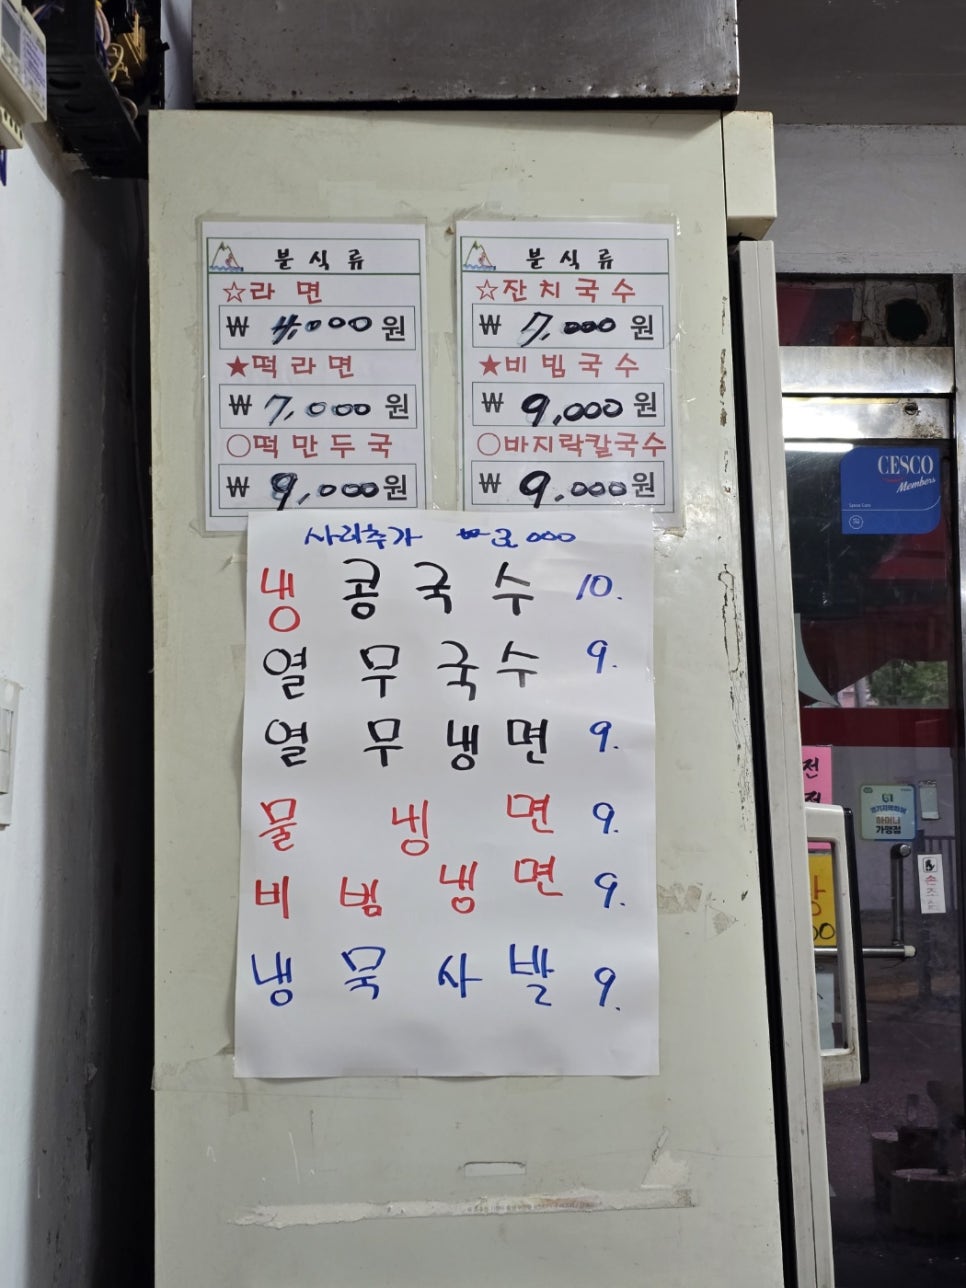 분식류
☆라면
₩ 4,000원
★떡라면
₩ 7,000원
○떡만두국
₩ 9,000원
분식류
☆잔치국수
₩ 7,000원
★비빔국수
₩ 9,000원
○바지락칼국수
₩ 9,000원
사리추가 ₩ 3,000
냉 콩국수 10.
열무국수 9.
열무냉면 9.
물냉면 9.
비빔냉면 9.
냉묵사발 9.
CESCO
Members
하머니
가맹점